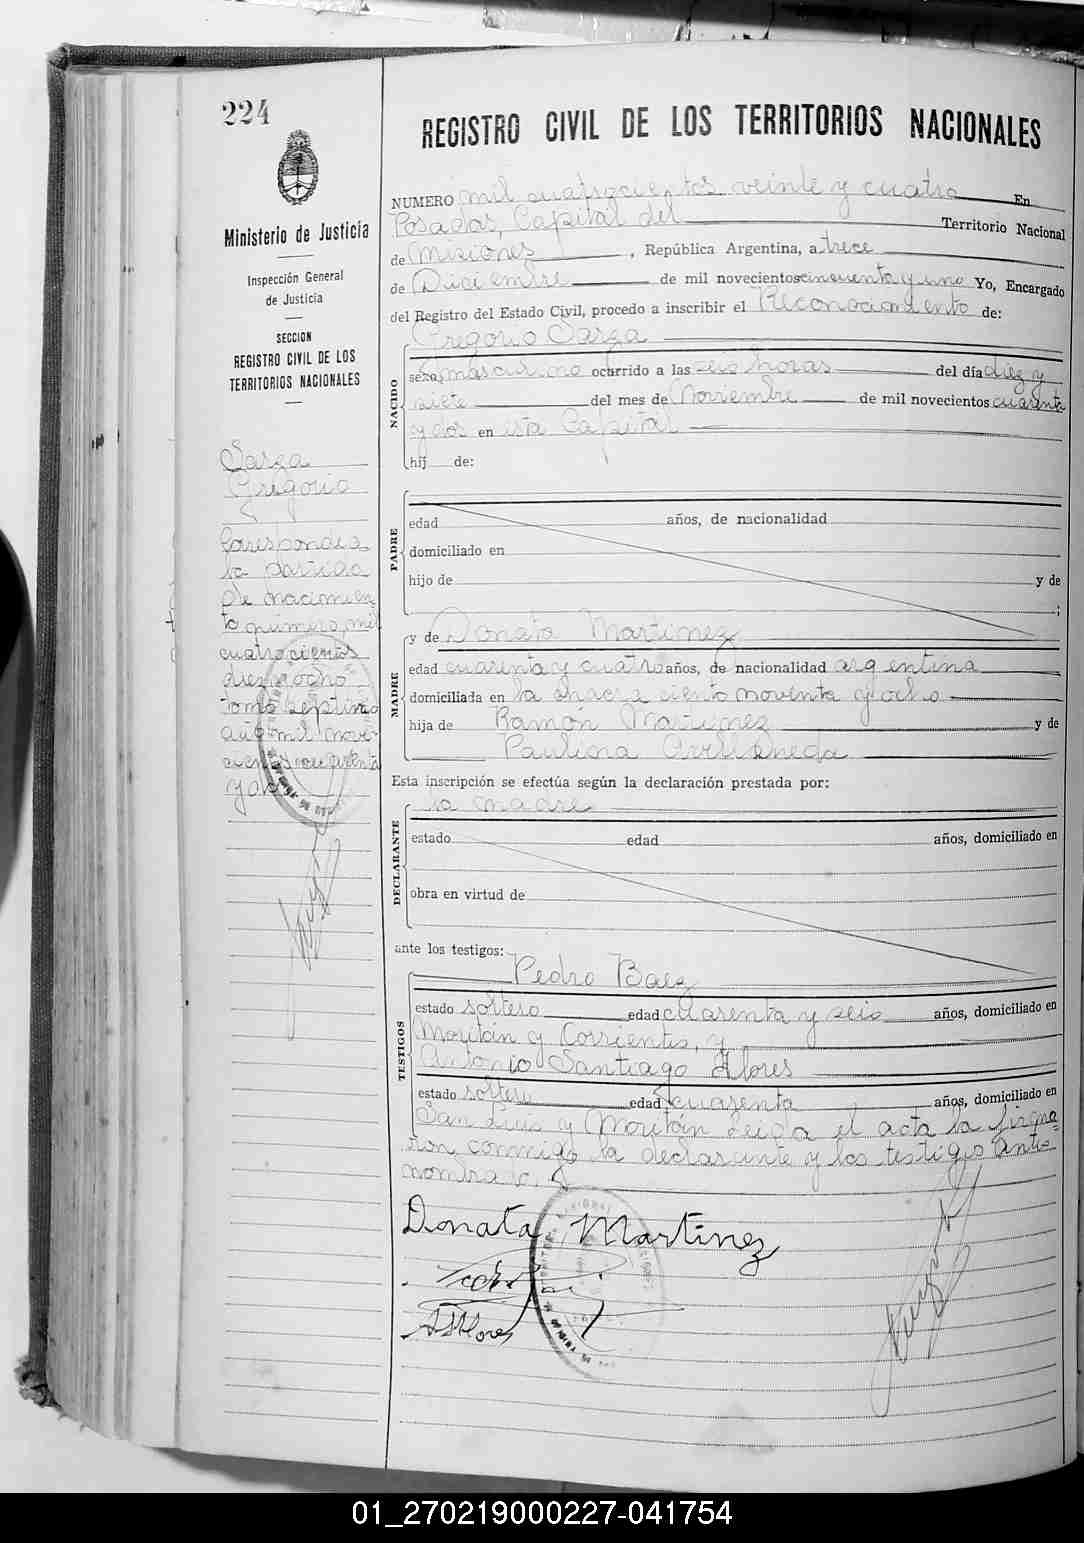 224
REGISTRO CIVIL DE LOS TERRITORIOS NACIONALES
Ministerio de Justicia
Inspección General
de Justicia
SECCION
REGISTRO CIVIL DE LOS
TERRITORIOS NACIONALES
Sarza
Gregorio
Corresponde a
la partida
de nacimien
to número mil
cuatrocientos
dieciocho
tomo septimo
año mil nove
cientos cuarenta
y dos
NUMERO mil cuatrocientos veinte y cuatro En
Posadas, Capital del Territorio Nacional
de Misiones, República Argentina, a trece
de Diciembre de mil novecientos cincuenta y uno Yo, Encargado
del Registro del Estado Civil, procedo a inscribir el Reconocimiento de:
Gregorio Sarza
NACIDO
sexo masculino ocurrido a las seis horas del día diez y
siete del mes de Noviembre de mil novecientos cuarenta
y dos en esta Capital
hij de:
PADRE
edad años, de nacionalidad
domiciliado en
hijo de y de
;
y de Donata Martinez
MADRE
edad cuarenta y cuatro años, de nacionalidad argentina
domiciliada en la chacra ciento noventa y ocho
hija de Ramón Martinez y de
Paulina Avellaneda
Esta inscripción se efectúa según la declaración prestada por:
la madre
DECLARANTE
estado edad años, domiciliado en
obra en virtud de
ante los testigos:
Pedro Baez
TESTIGOS
estado soltero edad cuarenta y seis años, domiciliado en
Moritán y Corrientes, y
Antonio Santiago Flores
estado soltero edad cuarenta años, domiciliado en
San Luis y Moritán Leida el acta la firma-
ron conmigo la declarante y los testigos ante-
nombrado.
Donata Martinez
A S Flores
01_270219000227-041754